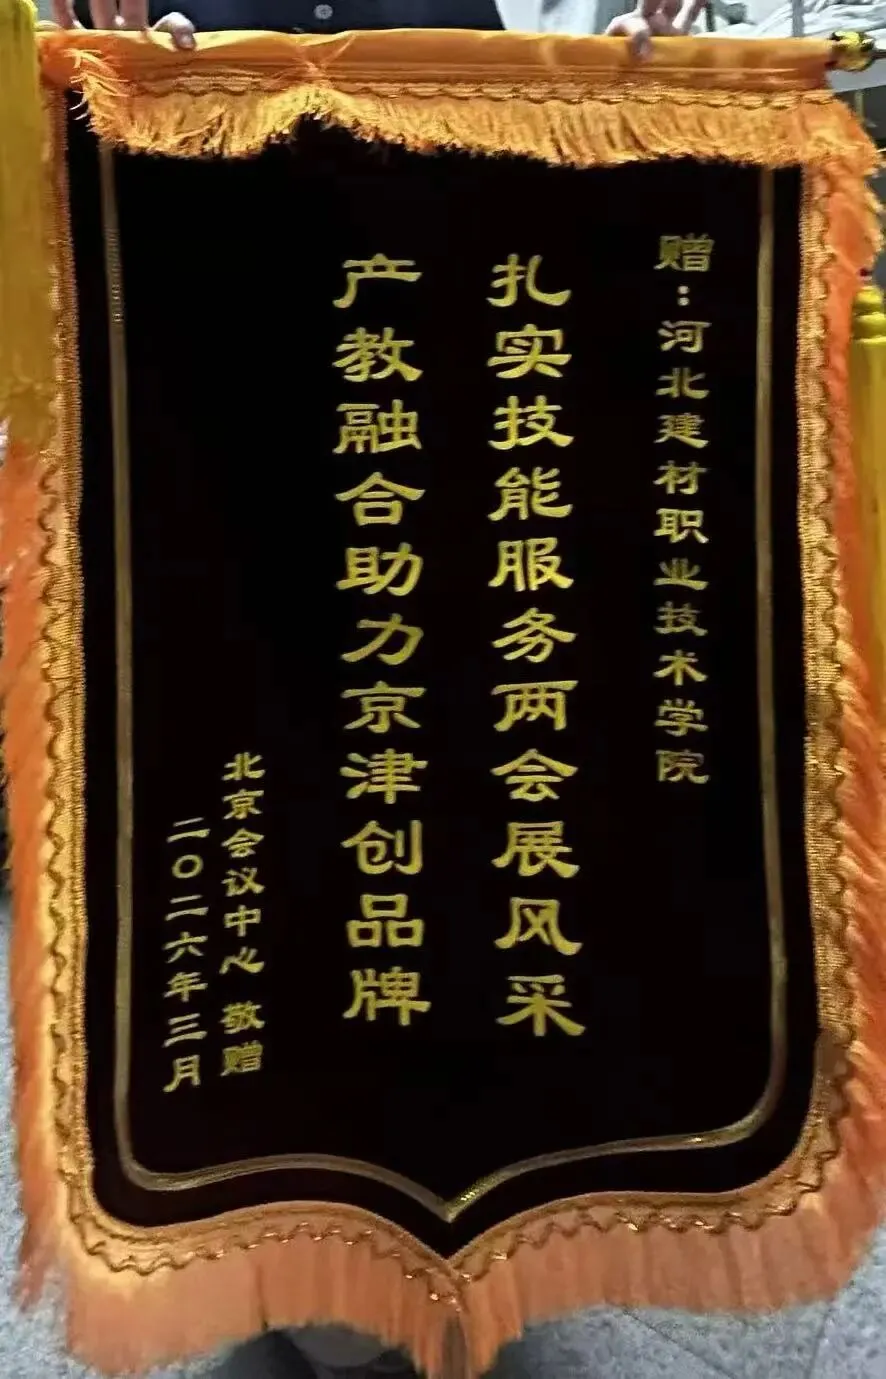 赠：河北建材职业技术学院
扎实技能服务两会展风采
产教融合助力京津创品牌
北京会议中心 敬赠
二〇二六年三月